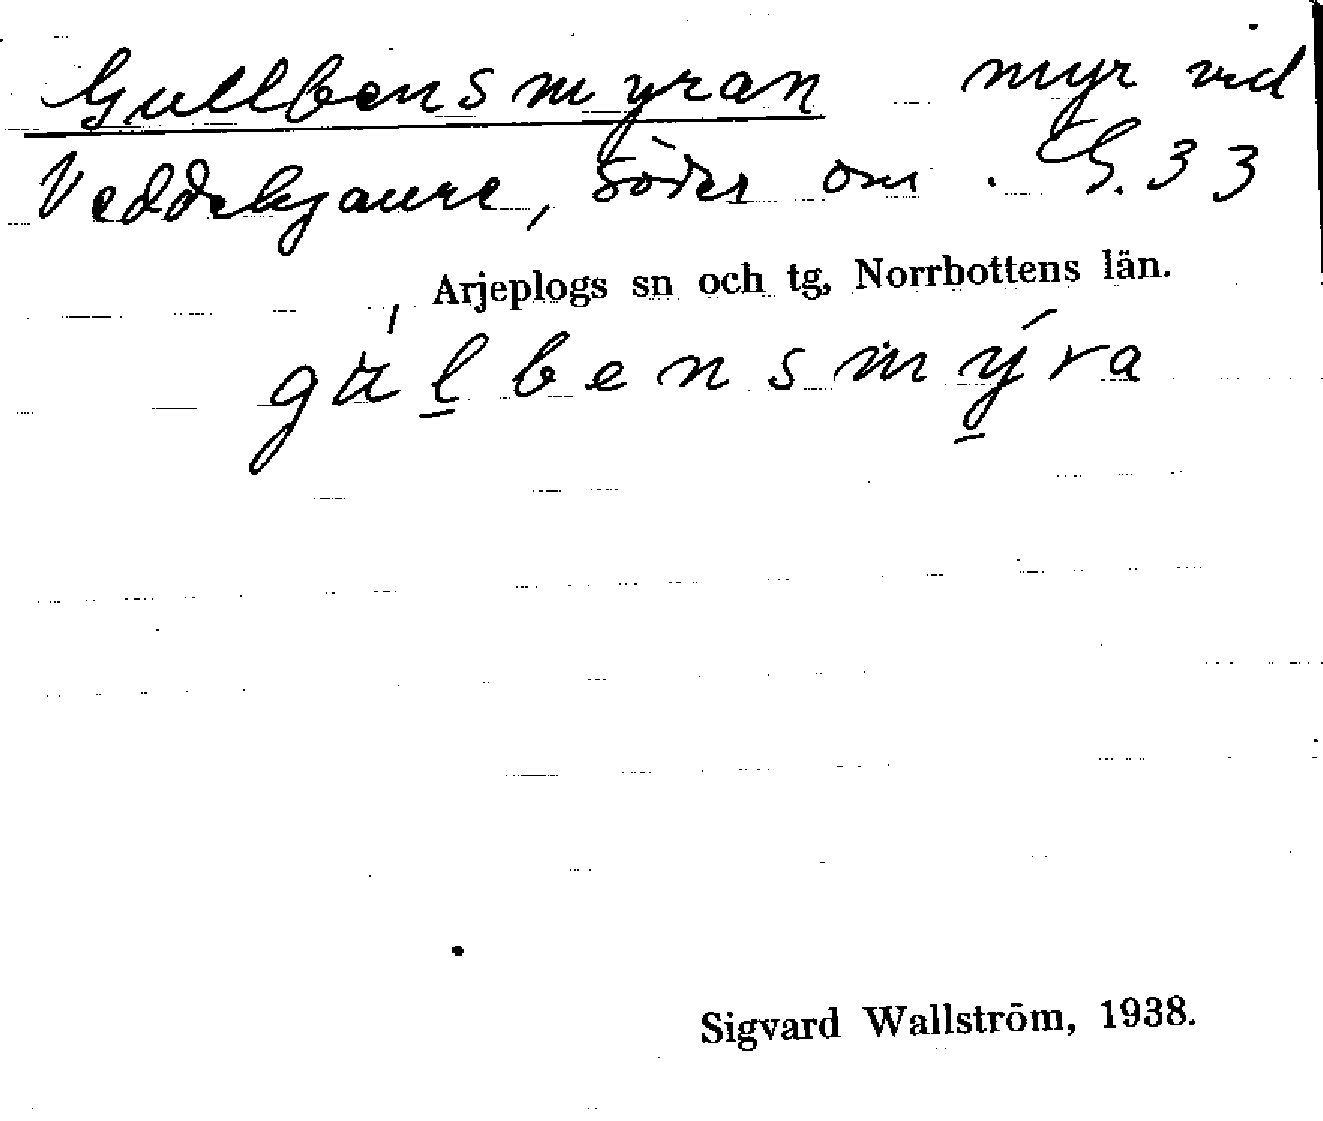 Gullbensmyran myr vid
Veddekjaure, söder om . G. 33
, Arjeplogs sn och tg, Norrbottens län.
gu̇l̲bensmý̲ra
Sigvard Wallström, 1938.